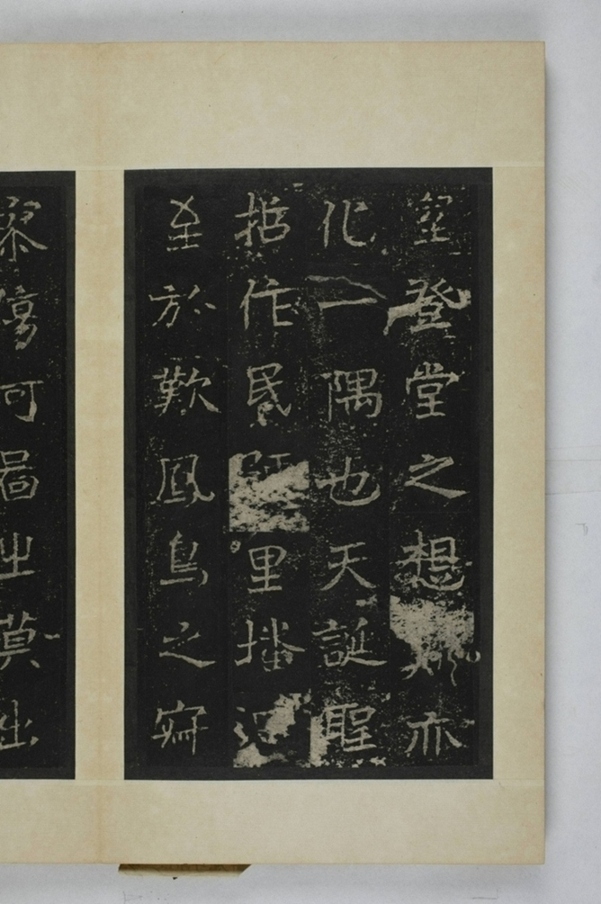 室登堂之想亦
化一隅也天誕聖
哲作民里播
至於歎鳳鳥之
啚莫出